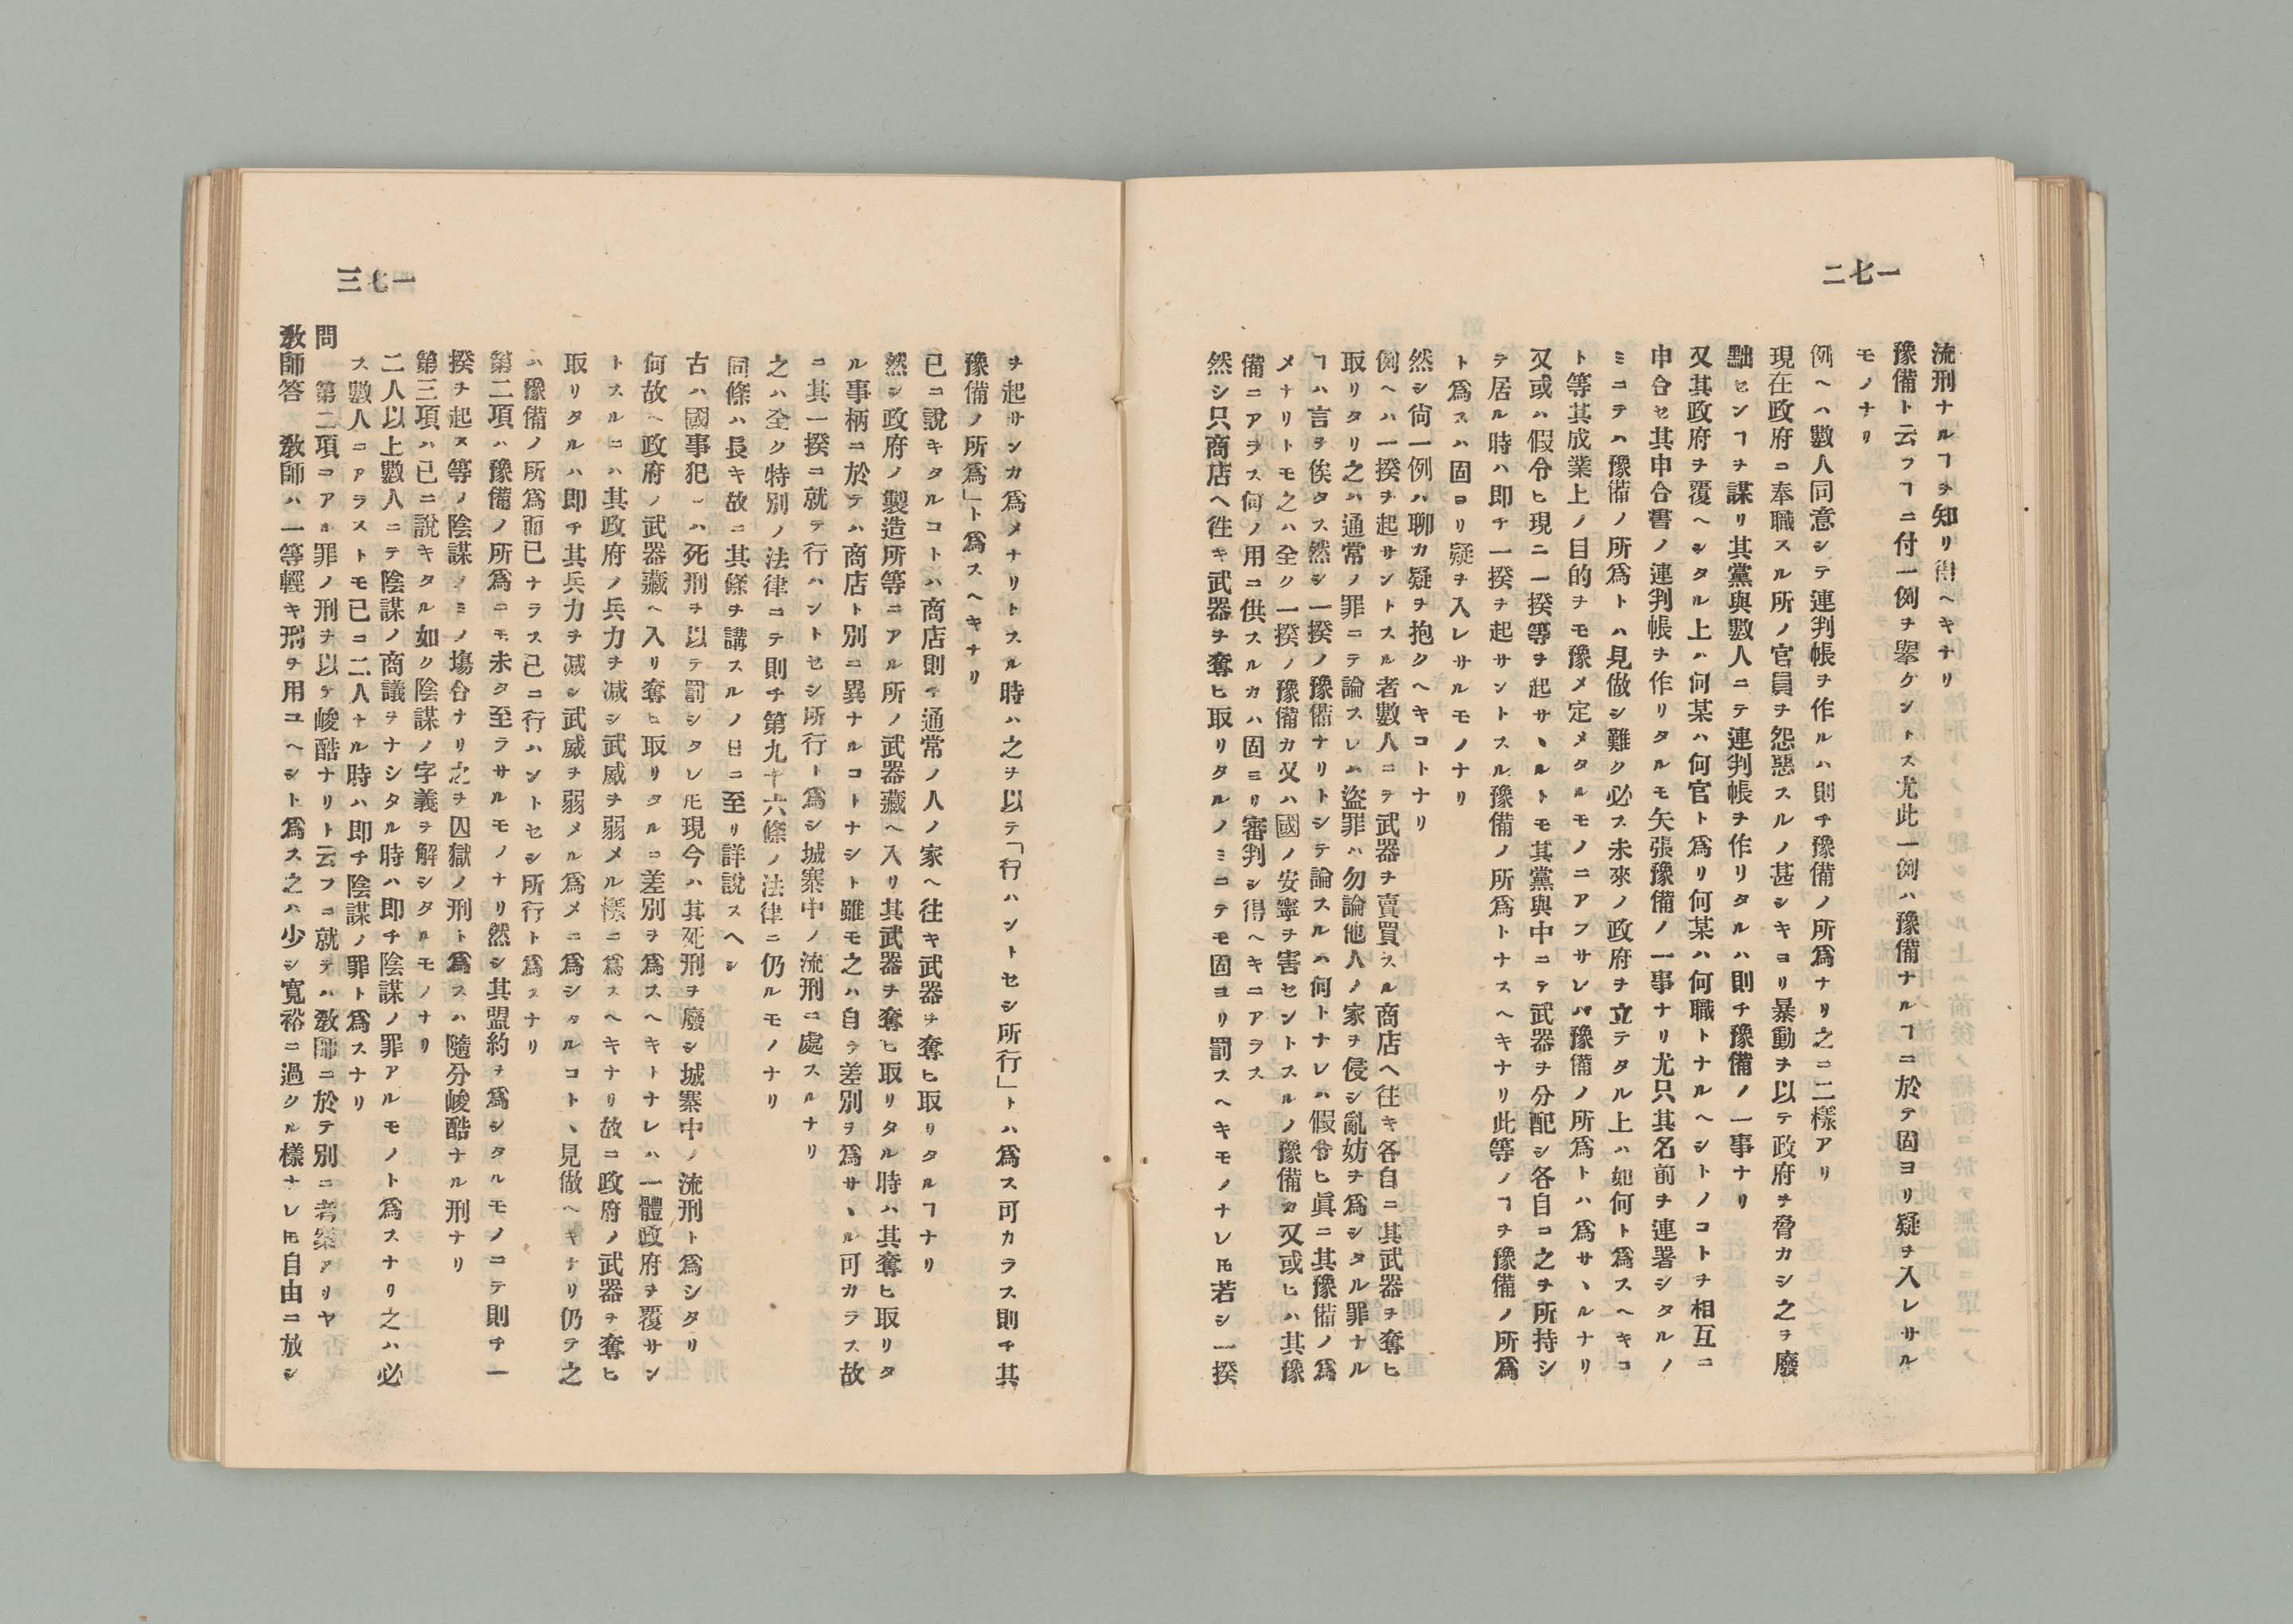 一七二
流刑ナルヿヲ知リ得ヘキナリ
豫備ト云フヿニ付一例ヲ擧クントス尤此一例ハ豫備ナルヿニ於テ固ヨリ疑ヲ入レサル
モノナリ
例ヘハ數人同意シテ連判帳ヲ作ルハ則チ豫備ノ所爲ナリ之ニ二樣アリ
現在政府ニ奉職スル所ノ官員ヲ怨惡スルノ甚シキヨリ暴動ヲ以テ政府ヲ脅カシ之ヲ廢
黜センヿヲ謀リ其黨與數人ニテ連判帳ヲ作リタルハ則チ豫備ノ一事ナリ
又其政府ヲ覆ヘシタル上ハ何某ハ何官ト爲リ何某ハ何職トナルヘシトノコトヲ相互ニ
申合セ其申合書ノ連判帳ヲ作リタルモ矢張豫備ノ一事ナリ尤只其名前ヲ連署シタルノ
ミニテハ豫備ノ所爲トハ見做シ難ク必ス未來ノ政府ヲ立テタル上ハ如何ト爲スヘキコ
ト等其成業上ノ目的ヲモ豫メ定メタルモノニアラサレハ豫備ノ所爲トハ爲サヽルナリ
又或ハ假令ヒ現ニ一揆等ヲ起サヽルトモ其黨與中ニテ武器ヲ分配シ各自ニ之ヲ所持シ
テ居ル時ハ即チ一揆ヲ起サントスル豫備ノ所爲トナスヘキナリ此等ノヿヲ豫備ノ所爲
ト爲スハ固ヨリ疑ヲ入レサルモノナリ
然シ尙一例ハ聊カ疑ヲ抱クヘキコトナリ
例ヘハ一揆ヲ起サントスル者數人ニテ武器ヲ賣買スル商店ヘ往キ各自ニ其武器ヲ奪ヒ
取リタリ之ハ通常ノ罪ニテ論スレハ盜罪ハ勿論他人ノ家ヲ侵シ亂妨ヲ爲シタル罪ナル
ヿハ言ヲ俟タス然シ一揆ノ豫備ナリトシテ論スルハ何トナレハ假令ヒ眞ニ其豫備ノ爲
メナリトモ之ハ全ク一揆ノ豫備カ又ハ國ノ安寧ヲ害セントスルノ豫備カ又或ヒハ其豫
備ニアラス何ノ用ニ供スルカハ固ヨリ審判シ得ヘキニアラス
然シ只商店ヘ往キ武器ヲ奪ヒ取リタルノミニテモ固ヨリ罰スヘキモノナレ𪜈若シ一揆
一七三
ヲ起サンカ爲メナリトスル時ハ之ヲ以テ「行ハントセシ所行」トハ爲ス可カラス則チ其
豫備ノ所爲」ト爲スヘキナリ
已ニ說キタルコトハ商店則チ通常ノ人ノ家ヘ往キ武器ヲ奪ヒ取リタルヿナリ
然シ政府ノ製造所等ニアル所ノ武器藏ヘ入リ其武器ヲ奪ヒ取リタル時ハ其奪ヒ取リタ
ル事柄ニ於テハ商店ト別ニ異ナルコトナシト雖モ之ハ自ラ差別ヲ爲サヽル可カラス故
ニ其一揆ニ就テ行ハントセシ所行ト爲シ城寨中ノ流刑ニ處スルナリ
之ハ全ク特別ノ法律ニテ則チ第九十六條ノ法律ニ仍ルモノナリ
同條ハ長キ故ニ其條ヲ講スルノ日ニ至リ詳說スヘシ
古ハ國事犯ーハ死刑ヲ以テ罰シタレ𪜈現今ハ其死刑ヲ廢シ城寨中ノ流刑ト爲シタリ
何故ヘ政府ノ武器藏ヘ入リ奪ヒ取リタルニ差別ヲ爲スヘキトナレハ一體政府ヲ覆サン
トスルニハ其政府ノ兵力ヲ減シ武威ヲ弱メル樣ニ爲スヘキナリ故ニ政府ノ武器ヲ奪ヒ
取リタルハ即チ其兵力ヲ減シ武威ヲ弱メル爲メニ爲シタルコトヽ見做ヘキナリ仍テ之
ハ豫備ノ所爲而已ナラス已ニ行ハントセシ所行ト爲スナリ
第二項ハ豫備ノ所爲ニモ未タ至ラサルモノナリ然シ其盟約ヲ爲シタルモノニテ則チ一
揆ヲ起ス等ノ陰謀ノミノ塲合ナリ之ヲ囚獄ノ刑ト爲スハ隨分峻酷ナル刑ナリ
第三項ハ已ニ說キタル如ク陰謀ノ字義ヲ解シタルモノナリ
二人以上數人ニテ陰謀ノ商議ヲナシタル時ハ即チ陰謀ノ罪アルモノト爲スナリ之ハ必
ス數人ニアラストモ已ニ二人ナル時ハ即チ陰謀ノ罪ト爲スナリ
問　第二項ニアル罪ノ刑ヲ以テ峻酷ナリト云フニ就テハ敎師ニ於テ別ニ考案アリヤ
敎師答　敎師ハ一等輕キ刑ヲ用ユヘシト爲ス之ハ少シ寬裕ニ過クル樣ナレ𪜈自由ニ放シ